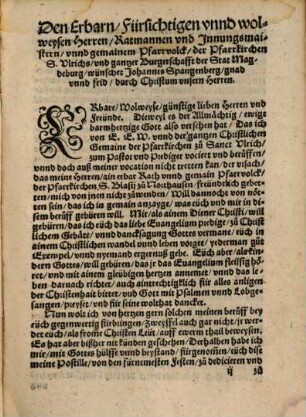 Den Erbarn / Fürsichtigen vnnd wol-
weysen Herren / Ratmannen vnd Innungsmai-
stern / vnnd gemainem Pfarrvolck / der Pfarrkirchen
S. Ulrichs / vnd gantzer Burgerschafft der Stat Mag-
deburg / wünschet Johannes Spangenberg / gnad
vnnd frid / durch Christum vnsern Herren.
ERbare / Wolweyse / günstige lieben Herren vnd
Freünde. Dieweyl es der Allmächtig / ewige
barmhertzige Got also versehen hat / Das ich
von E. E. W. vnnd der gantzen Christlichen
Gemaine der Pfarrkirchen zů Sanct Ulrich /
zum Pastor vnd Prediger vociert vnd berůffen /
vnnd doch auß meiner vocation nicht tretten kan / der vrsach /
das meine Herren / ain erbar Rath vnnd gemain Pfarrvolck /
der Pfarrkirchen S. Blasij zů Northausen / freündtlich gebet-
ten / mich von jnen nicht zůwenden / Will dannocht von nöt-
ten sein / das ich ja gemain anzayge / was eüch vnd mir in di-
sem berůff gebüren will. Mir / als ainem Diener Christi / will
gebüren / das ich eüch das liebe Euangelium predig / zů Christ-
lichem Gebätt / vnnd dancksagung Gottes vermant / eüch in
ainem Christlichen wandel vnnd leben vorgee / yederman gůt
Exempel / vnnd nyemandt ergernuß gebe. Eüch aber / als kin-
dern Gottes / will gebüren / das jr das Euangelium fleyssig hö-
ret / vnd mit ainem gleübigen hertzen annemet / vnnd das le-
ben darnach richtet / auch ainträchtigklich für alles anligen
der Christenhait bittet / vnd Got mit Psalmen vnnd Lobge-
sangen / preyset / vnd für seine wolthat dancket.
Nun wolt ich von hertzen gern solchen meinen berůff bey
eüch gegenwertig fündigen / Zweyffel auch gar nicht / jr wer-
det eüch / als fromē Christen Leüt / auff ewerem thail beweysen.
Es hat aber bißher nit künden geschehen / Derhalben habe ich
mir / mit Gottes hülffe vnnd beystand / fürgenom̄en / eüch dise
meine Postille / von den fürnemesten Festen / zů dediciern vnd
ij zů